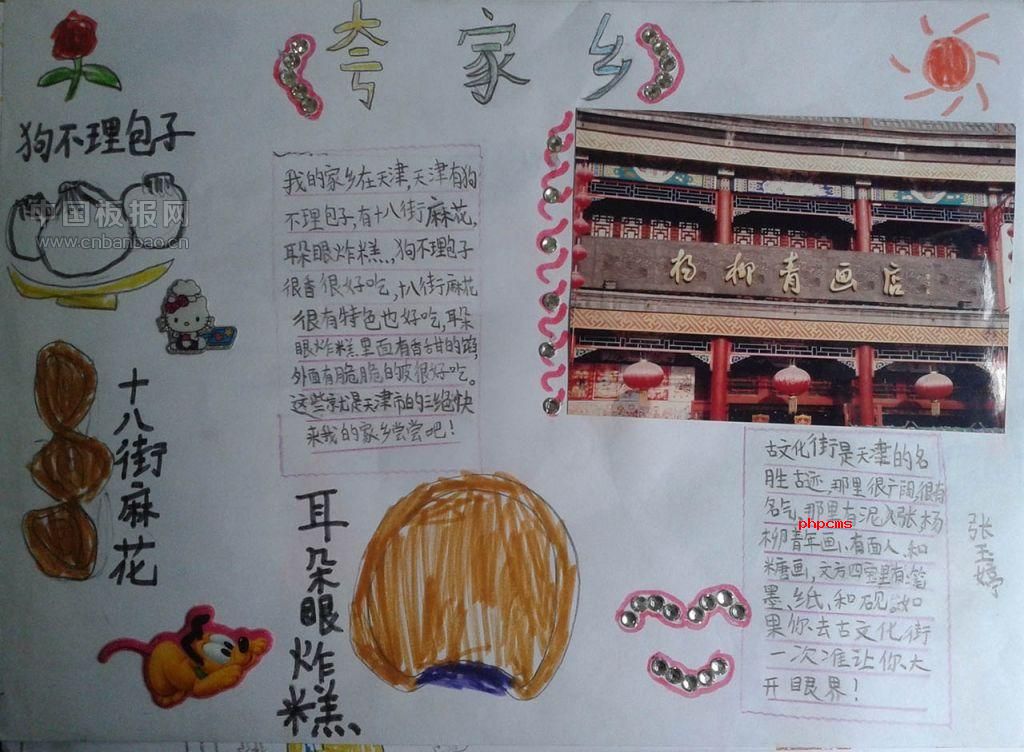 夸家乡
狗不理包子
中国板报网
www.cnbanbao.cn
我的家乡在天津,天津有狗
不理包子,有十八街麻花,
耳朵眼炸糕,狗不理包子
很香很好吃,十八街麻花
很有特色也好吃,耳朵
眼炸糕里面有香甜的馅,
外面有脆脆的皮很好吃。
这些就是天津市的三绝快
来我的家乡尝尝吧!
杨柳青画店
十八街麻花
耳朵眼炸糕
古文化街是天津的名
胜古迹,那里很广阔,很有
名气,那里有泥人张、杨
柳青年画、有面人、和
糖画,文房四宝里有:笔
墨、纸、和砚。如
果你去古文化街
一次准让你大
开眼界!
phpcms
张玉婷